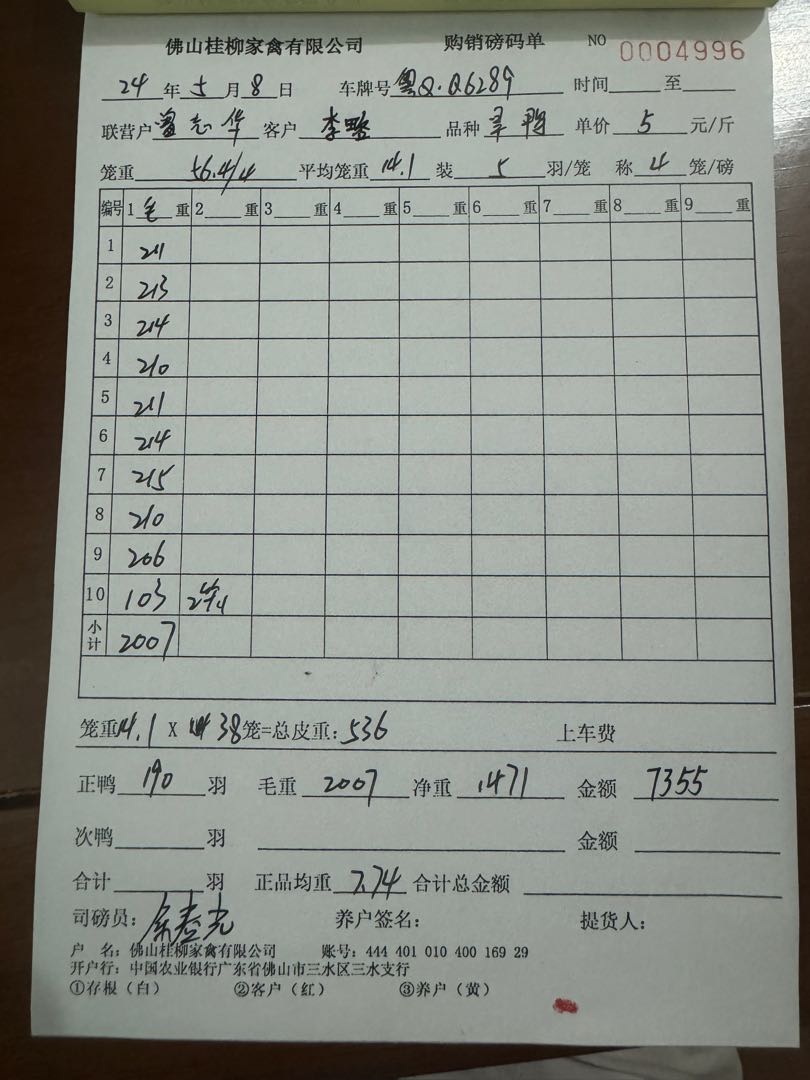 佛山桂柳家禽有限公司 购销磅码单 NO 0004996
24年5月8日 车牌号粤Q·Q6289 时间 至
联营户 志华 客户 李 品种 鸭 单价 5 元/斤
笼重 56.4/4 平均笼重 14.1 装 5 羽/笼 称 4 笼/磅
编号 1 毛 重 2 重 3 重 4 重 5 重 6 重 7 重 8 重 9 重
1 211
2 213
3 214
4 210
5 211
6 214
7 215
8 210
9 206
10 103
小计 2007
笼重14.1 X 38笼=总皮重:536 上车费
正鸭 190 羽 毛重 2007 净重 1471 金额 7355
次鸭 羽 金额
合计 羽 正品均重 7.74 合计总金额
司磅员: 养户签名: 提货人:
户 名: 佛山桂柳家禽有限公司 账号: 444 401 010 400 169 29
开户行: 中国农业银行广东省佛山市三水区三水支行
①存根(白) ②客户(红) ③养户(黄)